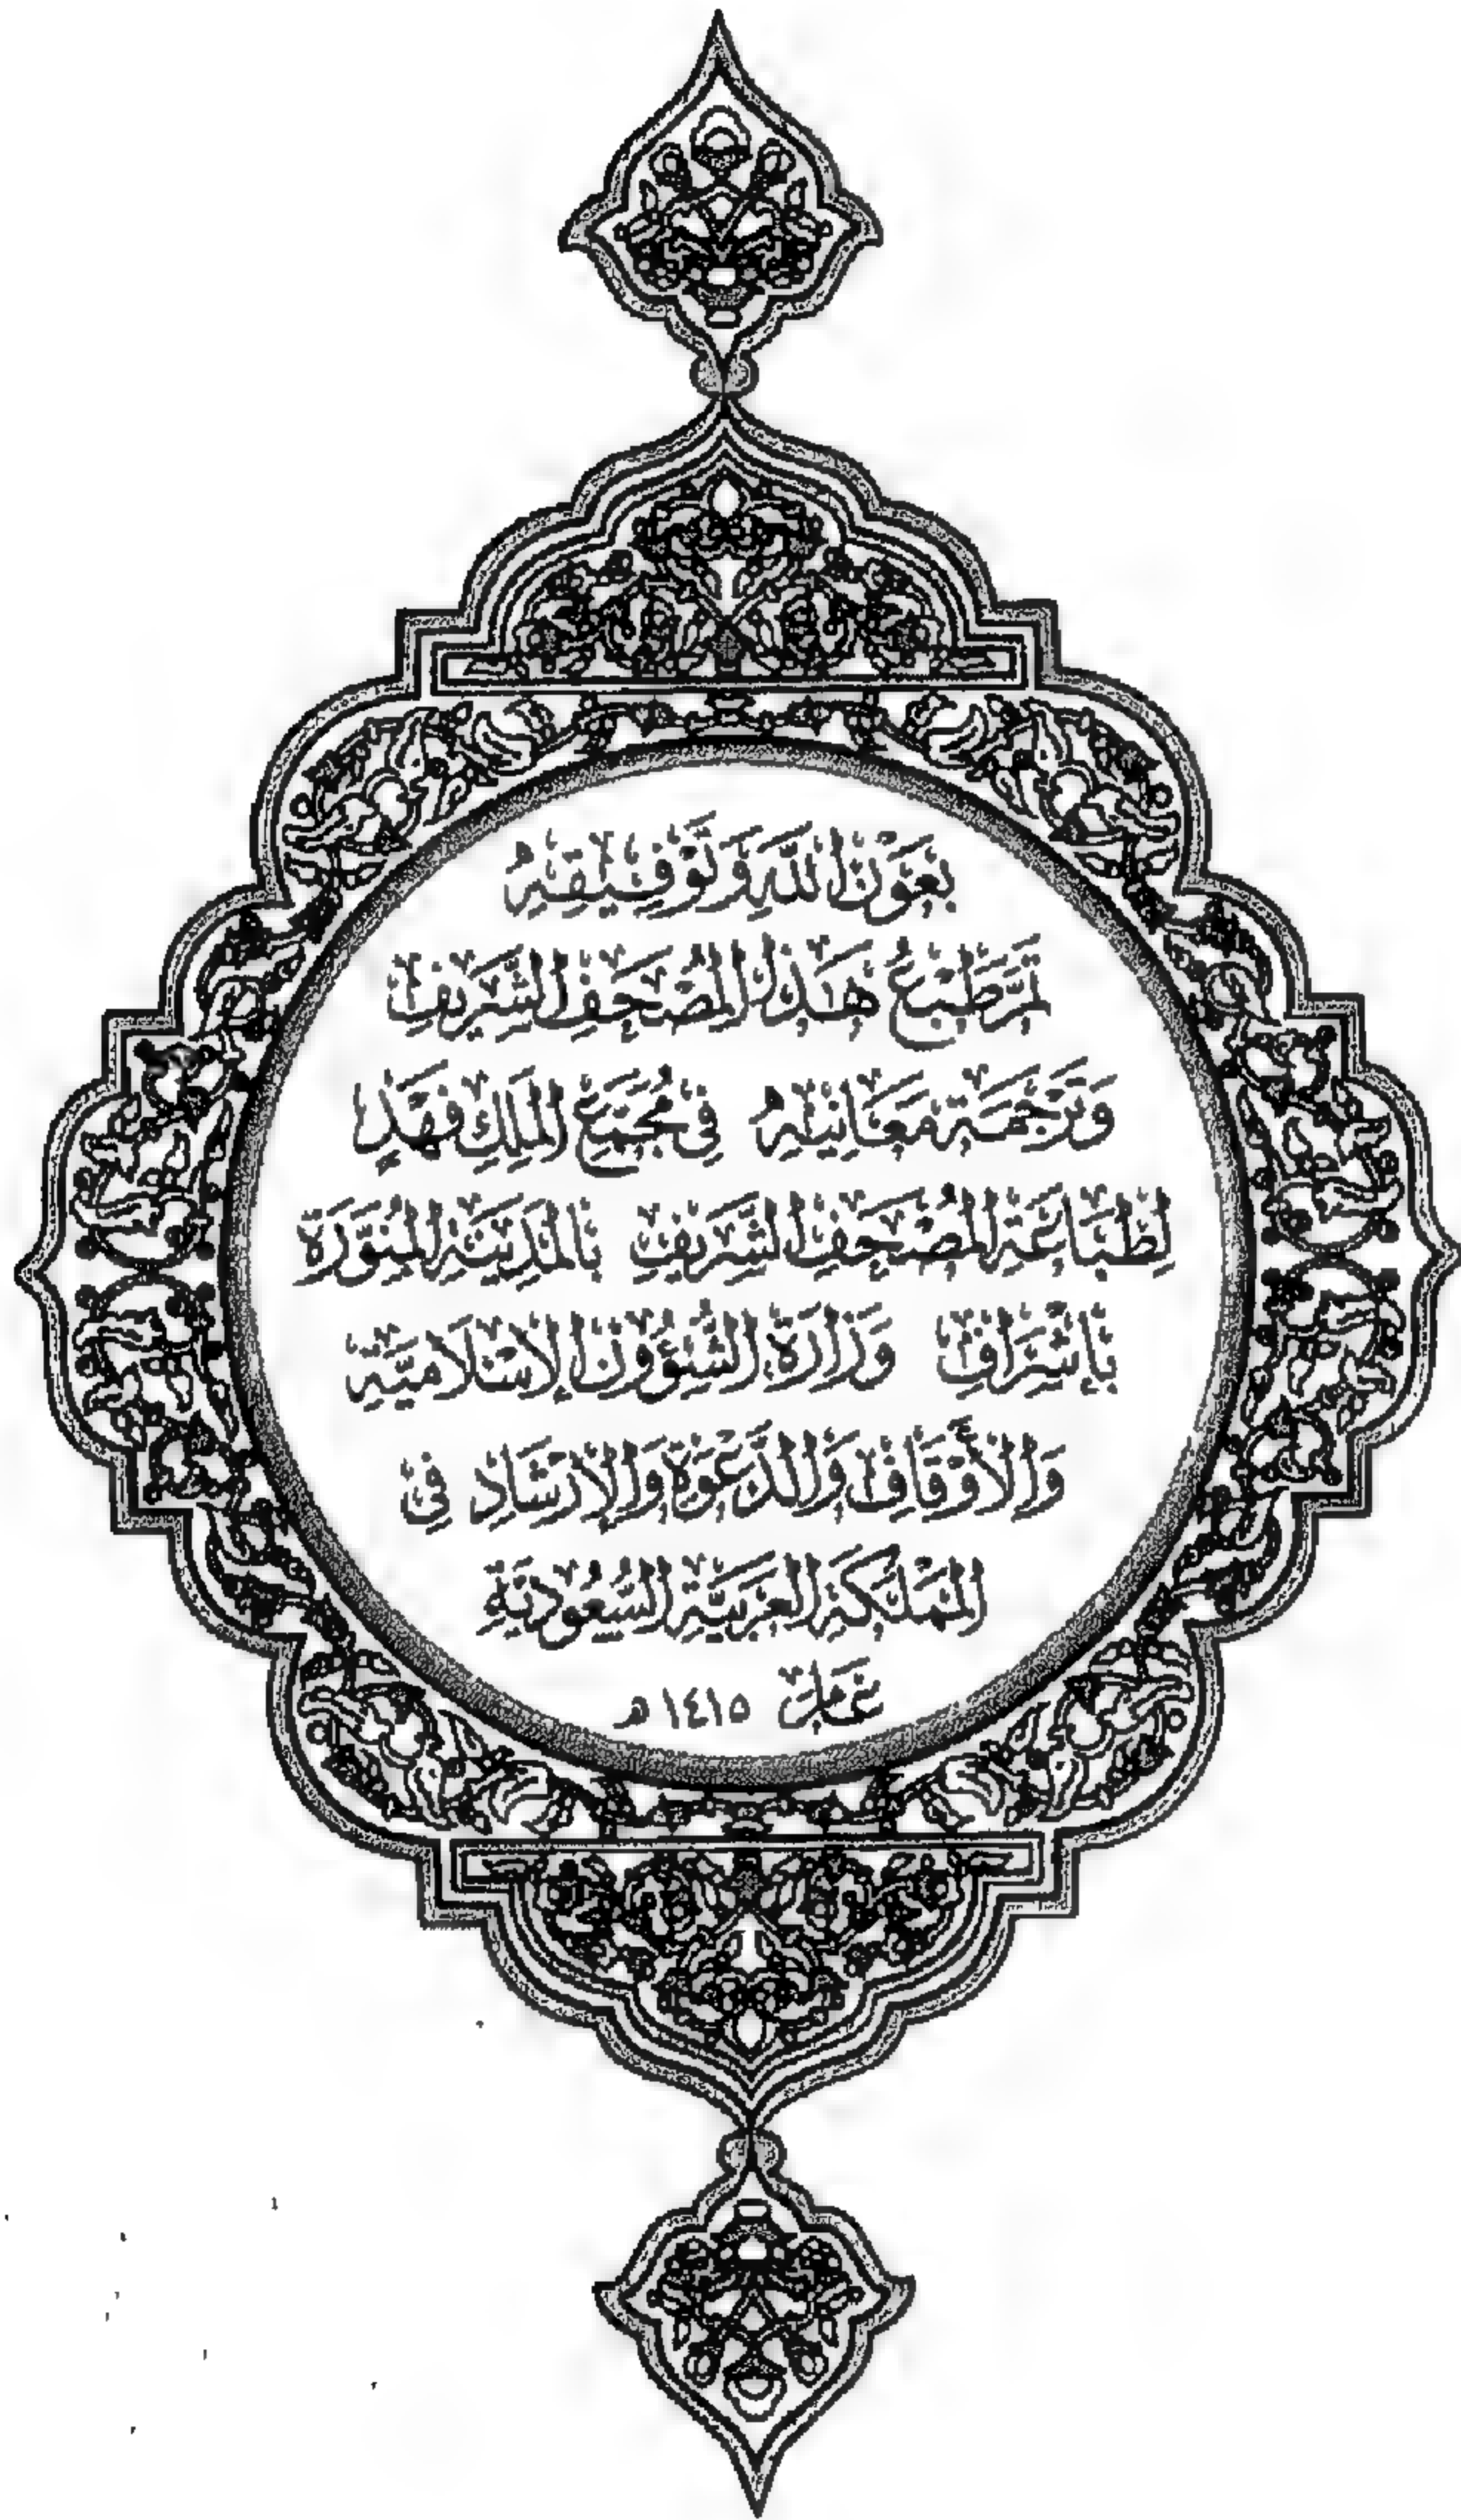 بِعَوْنِ اللَّهِ وَتَوْفِيقِهِ
تَمَّ طَبْعُ هَذَا الْمُصْحَفِ الشَّرِيفِ
وَتَرْجَمَةِ مَعَانِيهِ فِي مُجَمَّعِ الْمَلِكِ فَهْدٍ
لِطِبَاعَةِ الْمُصْحَفِ الشَّرِيفِ بِالْمَدِينَةِ الْمُنَوَّرَةِ
بِإِشْرَافِ وَزَارَةِ الشُّؤُونِ الْإِسْلَامِيَّةِ
وَالْأَوْقَافِ وَالدَّعْوَةِ وَالْإِرْشَادِ فِي
الْمَمْلَكَةِ الْعَرَبِيَّةِ السُّعُودِيَّةِ
عَامَ ١٤١٥ هـ